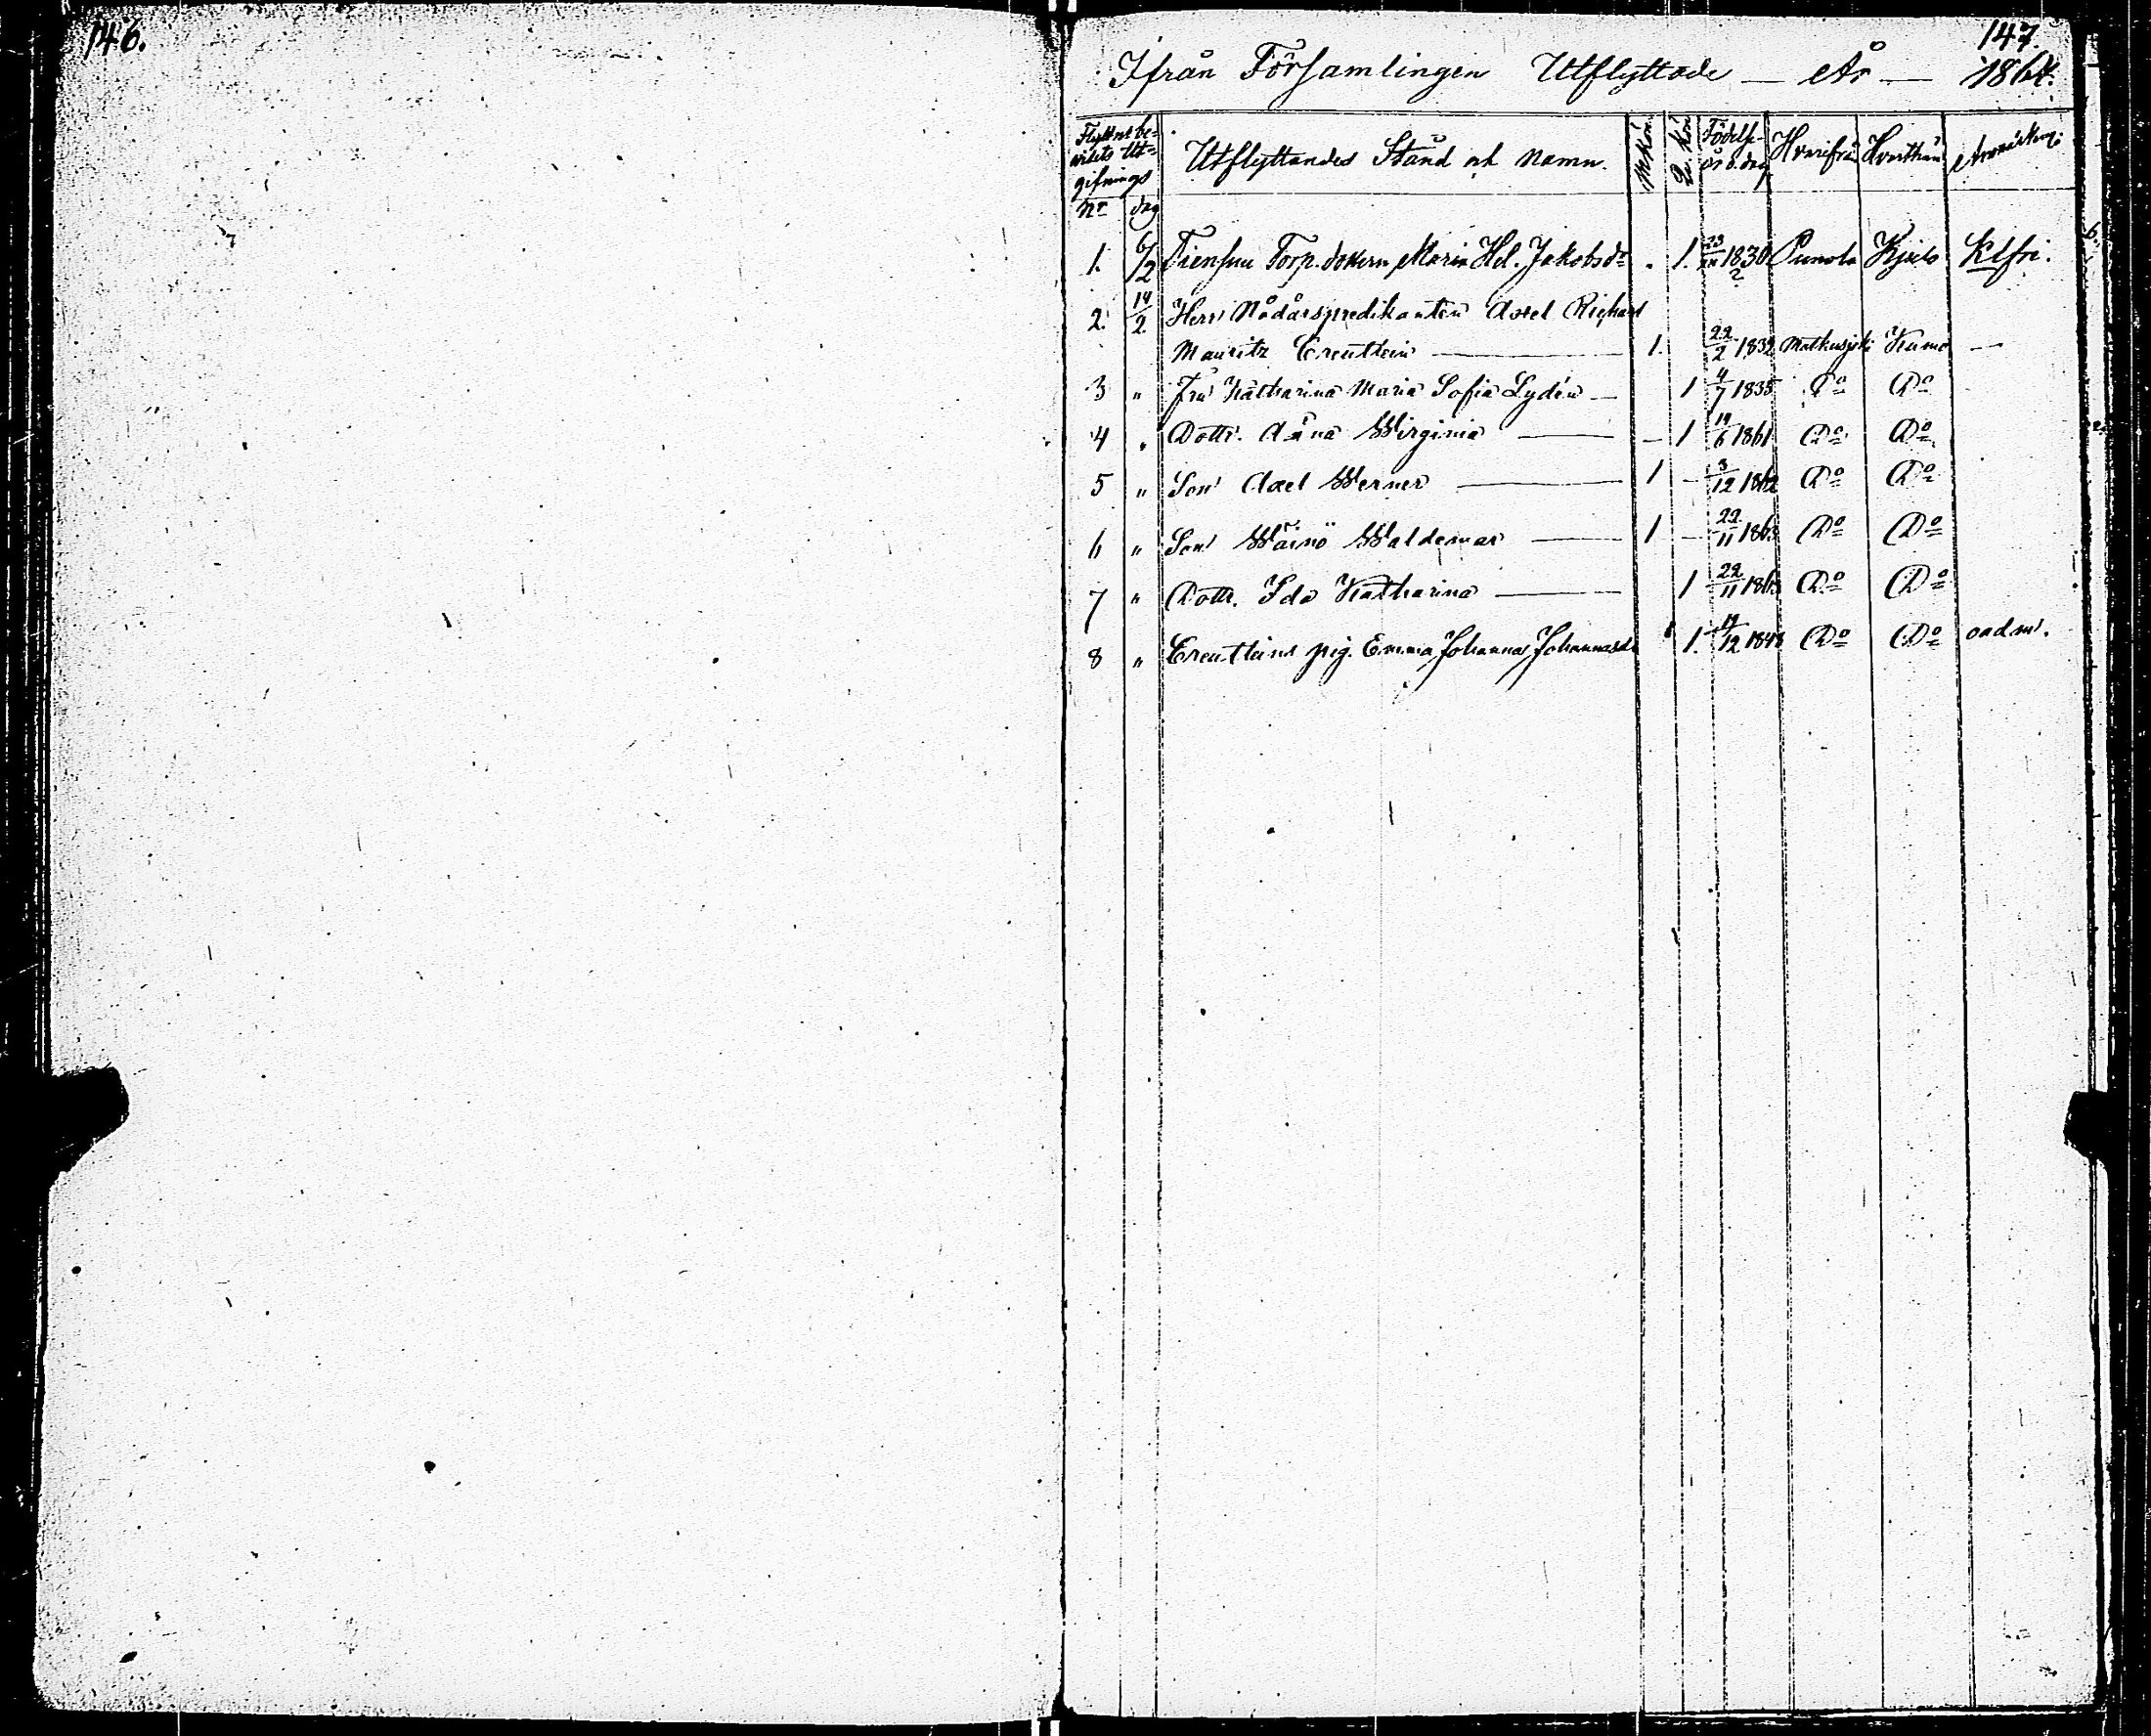 146.
147.
Ifrån Församlingen Utflyttade — År — 1864.
Flyttn. be-
visets Ut-
gifnings
No dag
Utflyttandes Stånd och Namn.
M. Kön
Q. Kön
Födelse-
år o. dag
Hvarifrån
Hvarthän
Anmärkn:
1. 6/2 Torp. dottern Maria Hel. Jakobsdr 1. 1830 Punola Kjulo Klfri.
2. 14/2 Herr Nådårspredikanten Axel Richard
Mauritz Creutlein — 1. 22/2 1832 Matkusjoki Kumo —
3 " Fru Katharina Maria Sofia Lydén — 1 4/7 1835 Do Do
4 " Dottr. Anna Wirginia — 1 19/6 1861 Do Do
5 " Son Axel Werner — 1 – 3/12 1862 Do Do
6 " Son Wäinö Waldemar — 1 – 22/11 1863 Do Do
7 " Dottr. Ida Katharina — 1 22/11 1863 Do Do
8 " Creutleins pig. Emma Johanna Johannesdr 1. 19/12 1848 Do Do oadm.